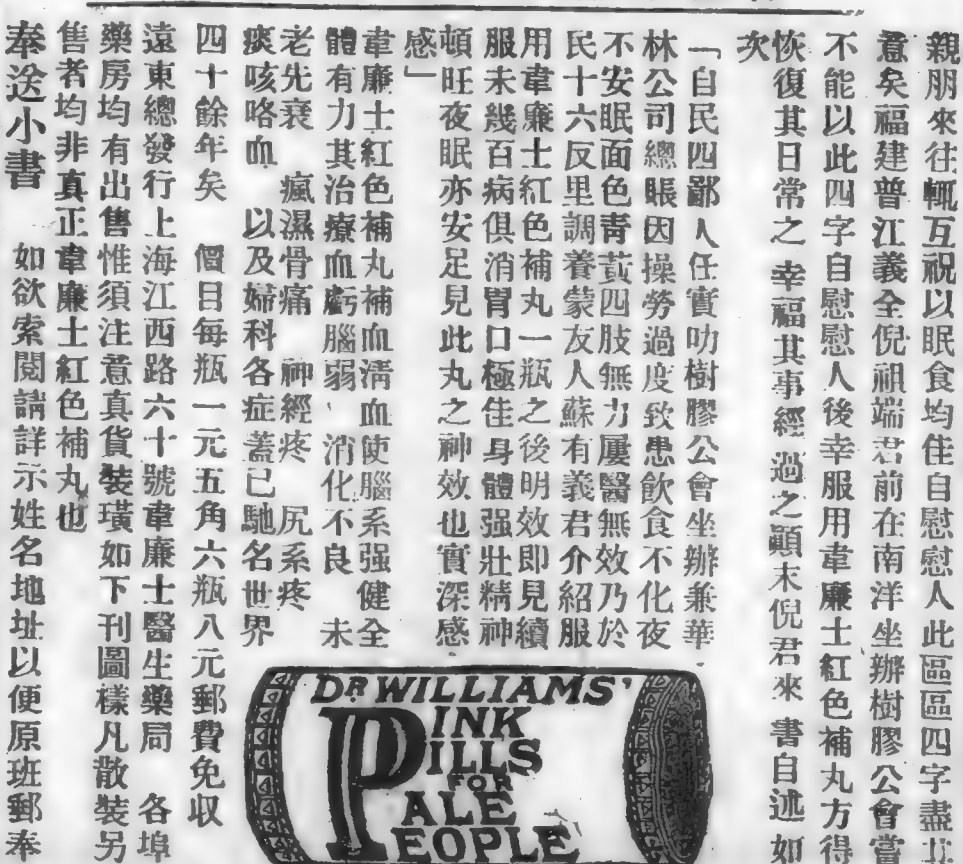 親朋來往輒互祝以眠食均佳自慰慰人此區區四字盡
意矣福建普江義全倪祖端君前在南洋坐辦樹膠公會當
不能以此四字自慰慰人後幸服用韋廉士紅色補丸方得
恢復其日常之 幸福其事經過之顚末倪君來書自述如
次
「自民四鄙人任實叻樹膠公會坐辦兼華
林公司總賬因操勞過度致患飲食不化夜
不安眠面色靑黃四肢無力屢醫無效乃於
民十六反里調養蒙友人蘇有義君介紹服
用韋廉士紅色補丸一瓶之後明效即見續
服未幾百病俱消胃口極佳身體强壯精神
頓旺夜眠亦安足見此丸之神效也實深感
感」
韋廉士紅色補丸補血淸血使腦系强健全
體有力其治療血虧腦弱 消化不良 未
老先衰 瘋濕骨痛 神經疼 尻系疼
痰咳咯血 以及婦科各症蓋已馳名世界
四十餘年矣 價目每瓶一元五角六瓶八元郵費免収
遠東總發行上海江西路六十號韋廉士醫生藥局 各埠
藥房均有出售惟須注意真貨裝璜如下刊圖樣凡散裝另
售者均非真正韋廉士紅色補丸也
奉送小書 如欲索閱請詳示姓名地址以便原班郵奉
DR WILLIAMS'
PINK
PILLS
FOR
PALE
PEOPLE